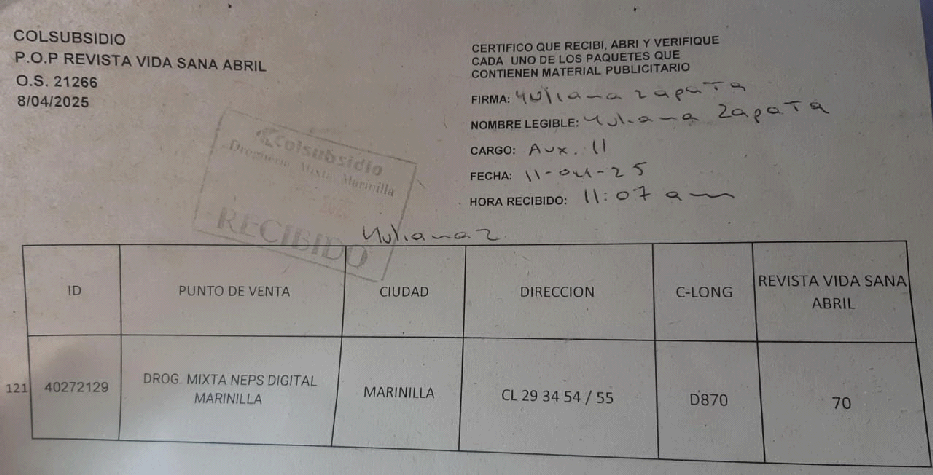 COLSUBSIDIO
P.O.P REVISTA VIDA SANA ABRIL
O.S. 21266
8/04/2025
CERTIFICO QUE RECIBI, ABRI Y VERIFIQUE
CADA UNO DE LOS PAQUETES QUE
CONTIENEN MATERIAL PUBLICITARIO
FIRMA: Yuliana Zapata
NOMBRE LEGIBLE: Yuliana Zapata
CARGO: Aux. 11
FECHA: 11-04-25
HORA RECIBIDO: 11:07 am
Colsubsidio
Droguería Mixta Marinilla
RECIBIDO
Yuliana Z
ID PUNTO DE VENTA CIUDAD DIRECCION C-LONG REVISTA VIDA SANA
ABRIL
121 40272129 DROG. MIXTA NEPS DIGITAL MARINILLA CL 29 34 54 / 55 D870 70
MARINILLA